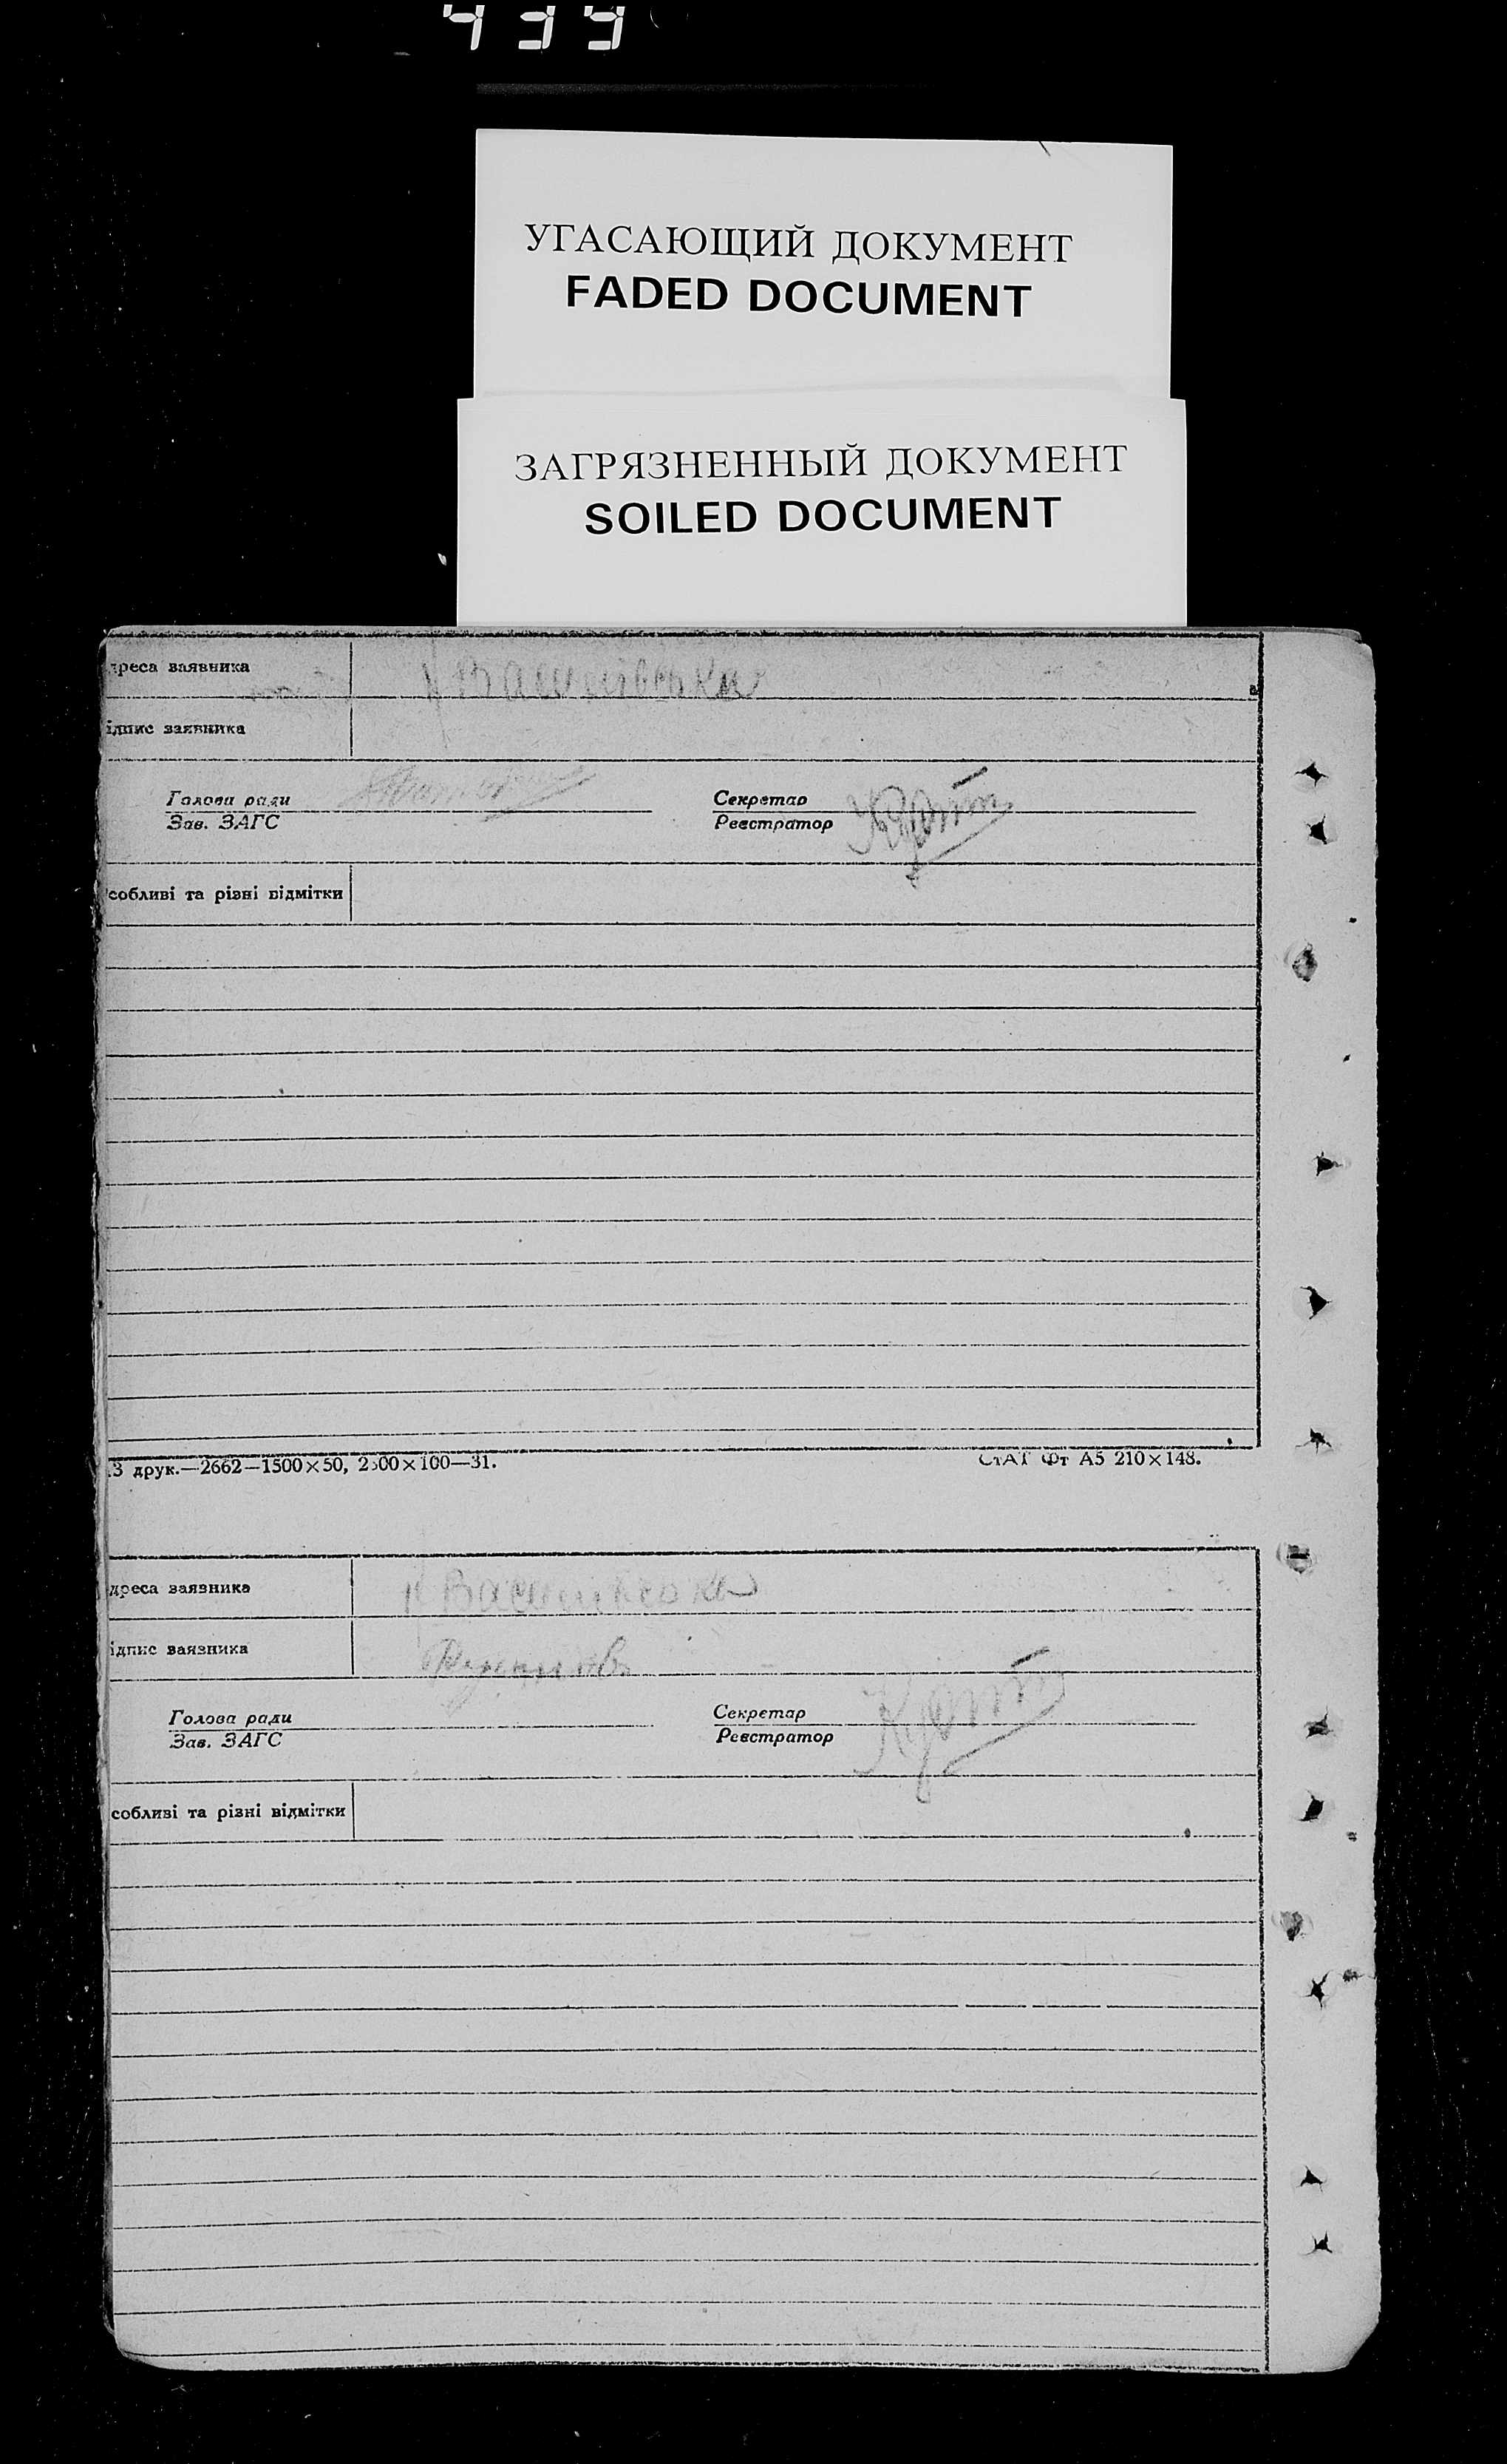 439
УГАСАЮЩИЙ ДОКУМЕНТ
FADED DOCUMENT
ЗАГРЯЗНЕННЫЙ ДОКУМЕНТ
SOILED DOCUMENT
дреса заявника
ідпис заявника
Голова ради
Зав. ЗАГС
Секретар
Реєстратор
собливі та різні відмітки
3 друк.—2662—1500×50, 2500×100—31.
СтАТ Фт А5 210×148.
дреса заявника
ідпис заявника
Голова ради
Зав. ЗАГС
Секретар
Реєстратор
собливі та різні відмітки